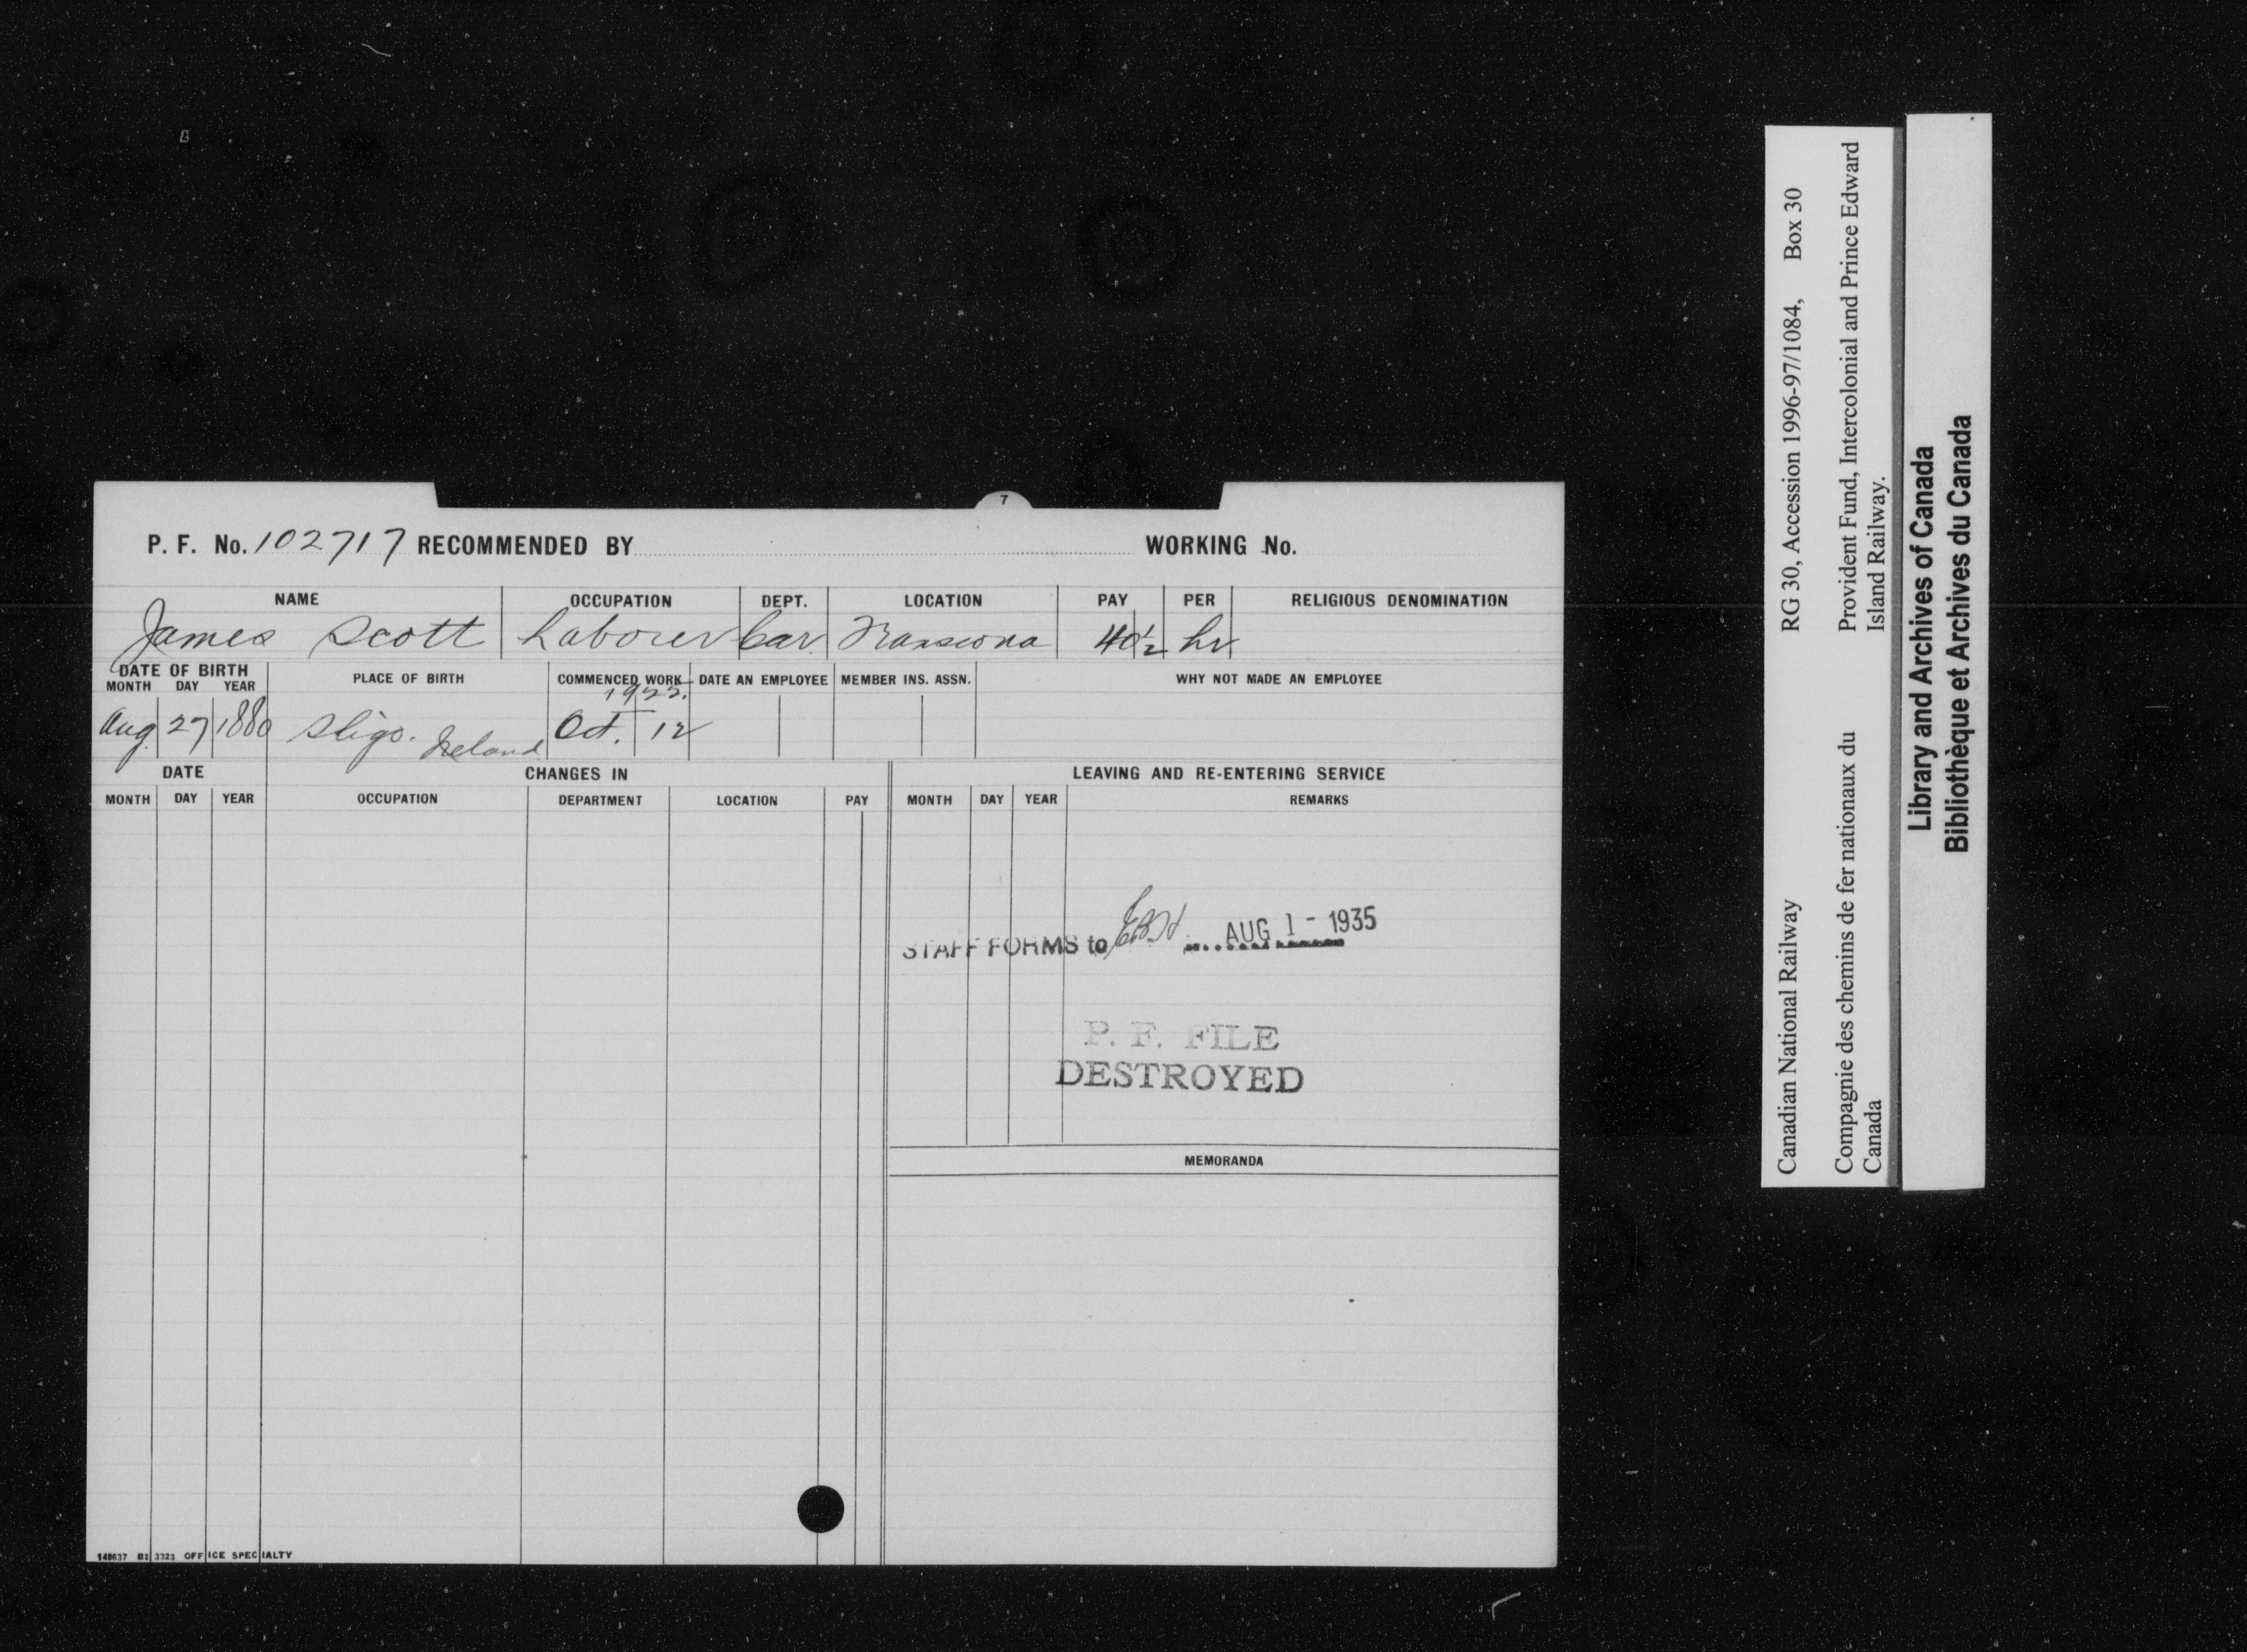 7
P. F. No. 102717 RECOMMENDED BY WORKING No.
NAME OCCUPATION DEPT. LOCATION PAY PER RELIGIOUS DENOMINATION
James Scott Laborer Car. Transcona 40½ hr.
DATE OF BIRTH
MONTH DAY YEAR PLACE OF BIRTH COMMENCED WORK DATE AN EMPLOYEE MEMBER INS. ASSN. WHY NOT MADE AN EMPLOYEE
1922.
Aug. 27 1880 Sligo. Ireland Oct. 12
DATE CHANGES IN LEAVING AND RE-ENTERING SERVICE
MONTH DAY YEAR OCCUPATION DEPARTMENT LOCATION PAY MONTH DAY YEAR REMARKS
STAFF FORMS to AUG 1 - 1935
P. F. FILE
DESTROYED
MEMORANDA
148637 B1 3323 OFFICE SPECIALTY
Canadian National Railway RG 30, Accession 1996-97/1084, Box 30
Compagnie des chemins de fer nationaux du Provident Fund, Intercolonial and Prince Edward
Canada Island Railway.
Library and Archives of Canada
Bibliothèque et Archives du Canada